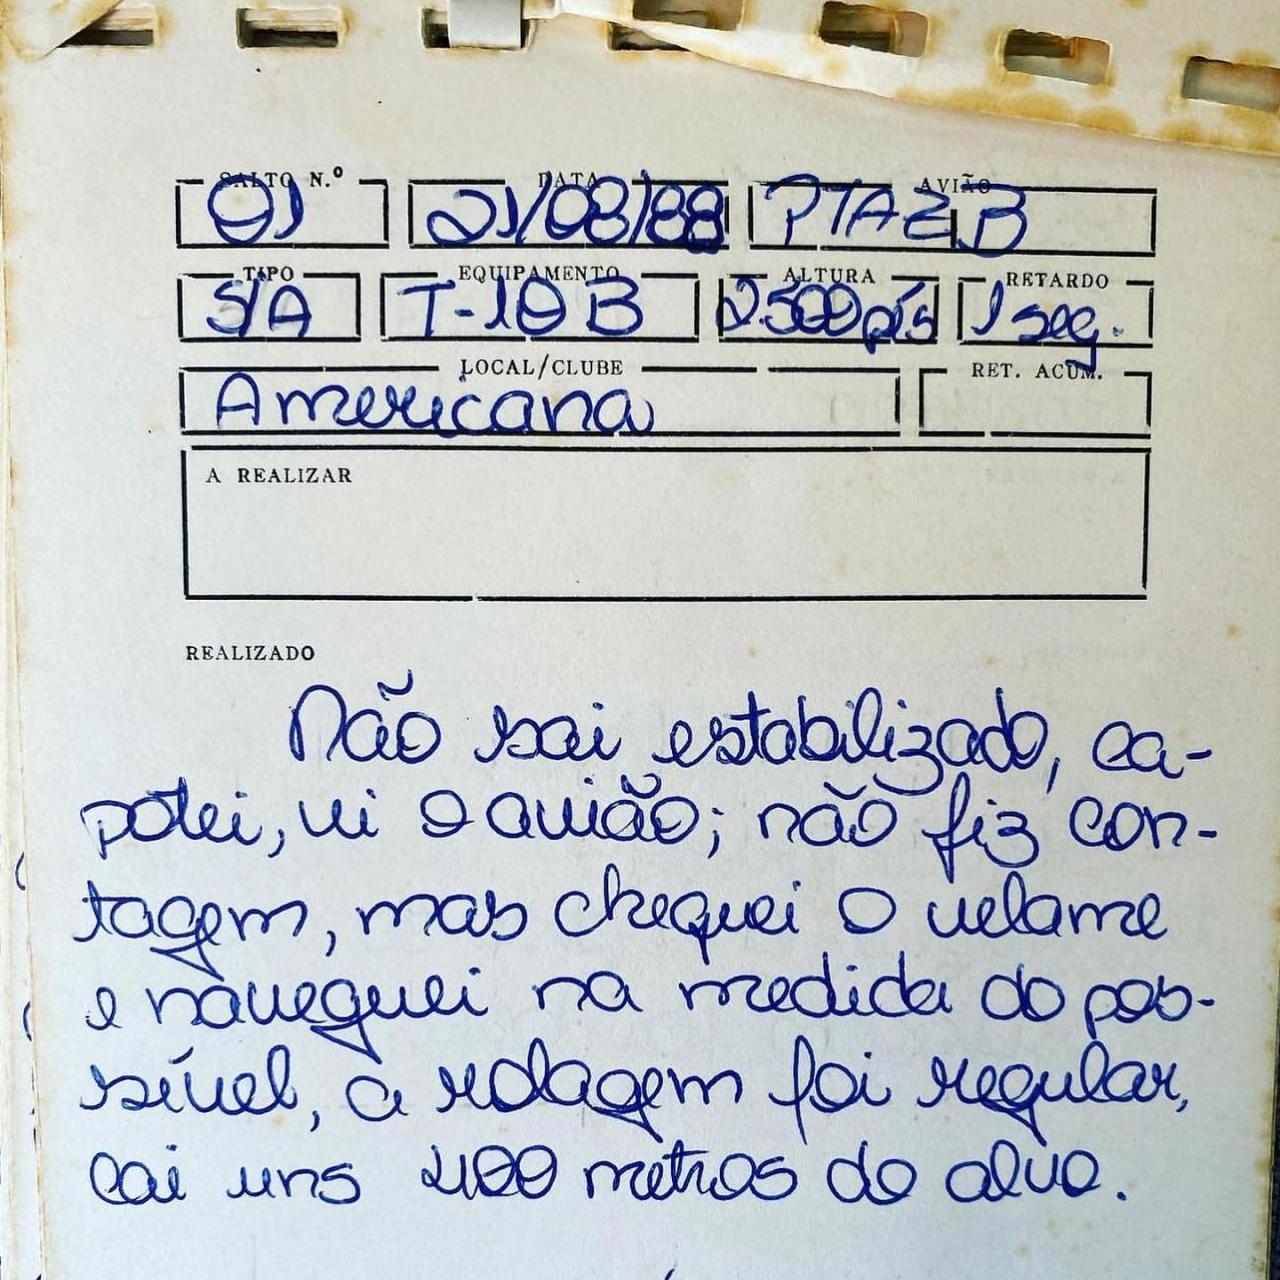 SALTO N.º DATA AVIÃO
01 21/08/88 PTAEB
TIPO EQUIPAMENTO ALTURA RETARDO
S/A T-10 B 2.500 pés 1 seg.
LOCAL/CLUBE RET. ACUM.
Americana
A REALIZAR
REALIZADO
Não sai estabilizado, ca-
potei, vi o avião; não fiz con-
tagem, mas chequei o velame
e naveguei na medida do pos-
sível, a rolagem foi regular,
cai uns 400 metros do alvo.